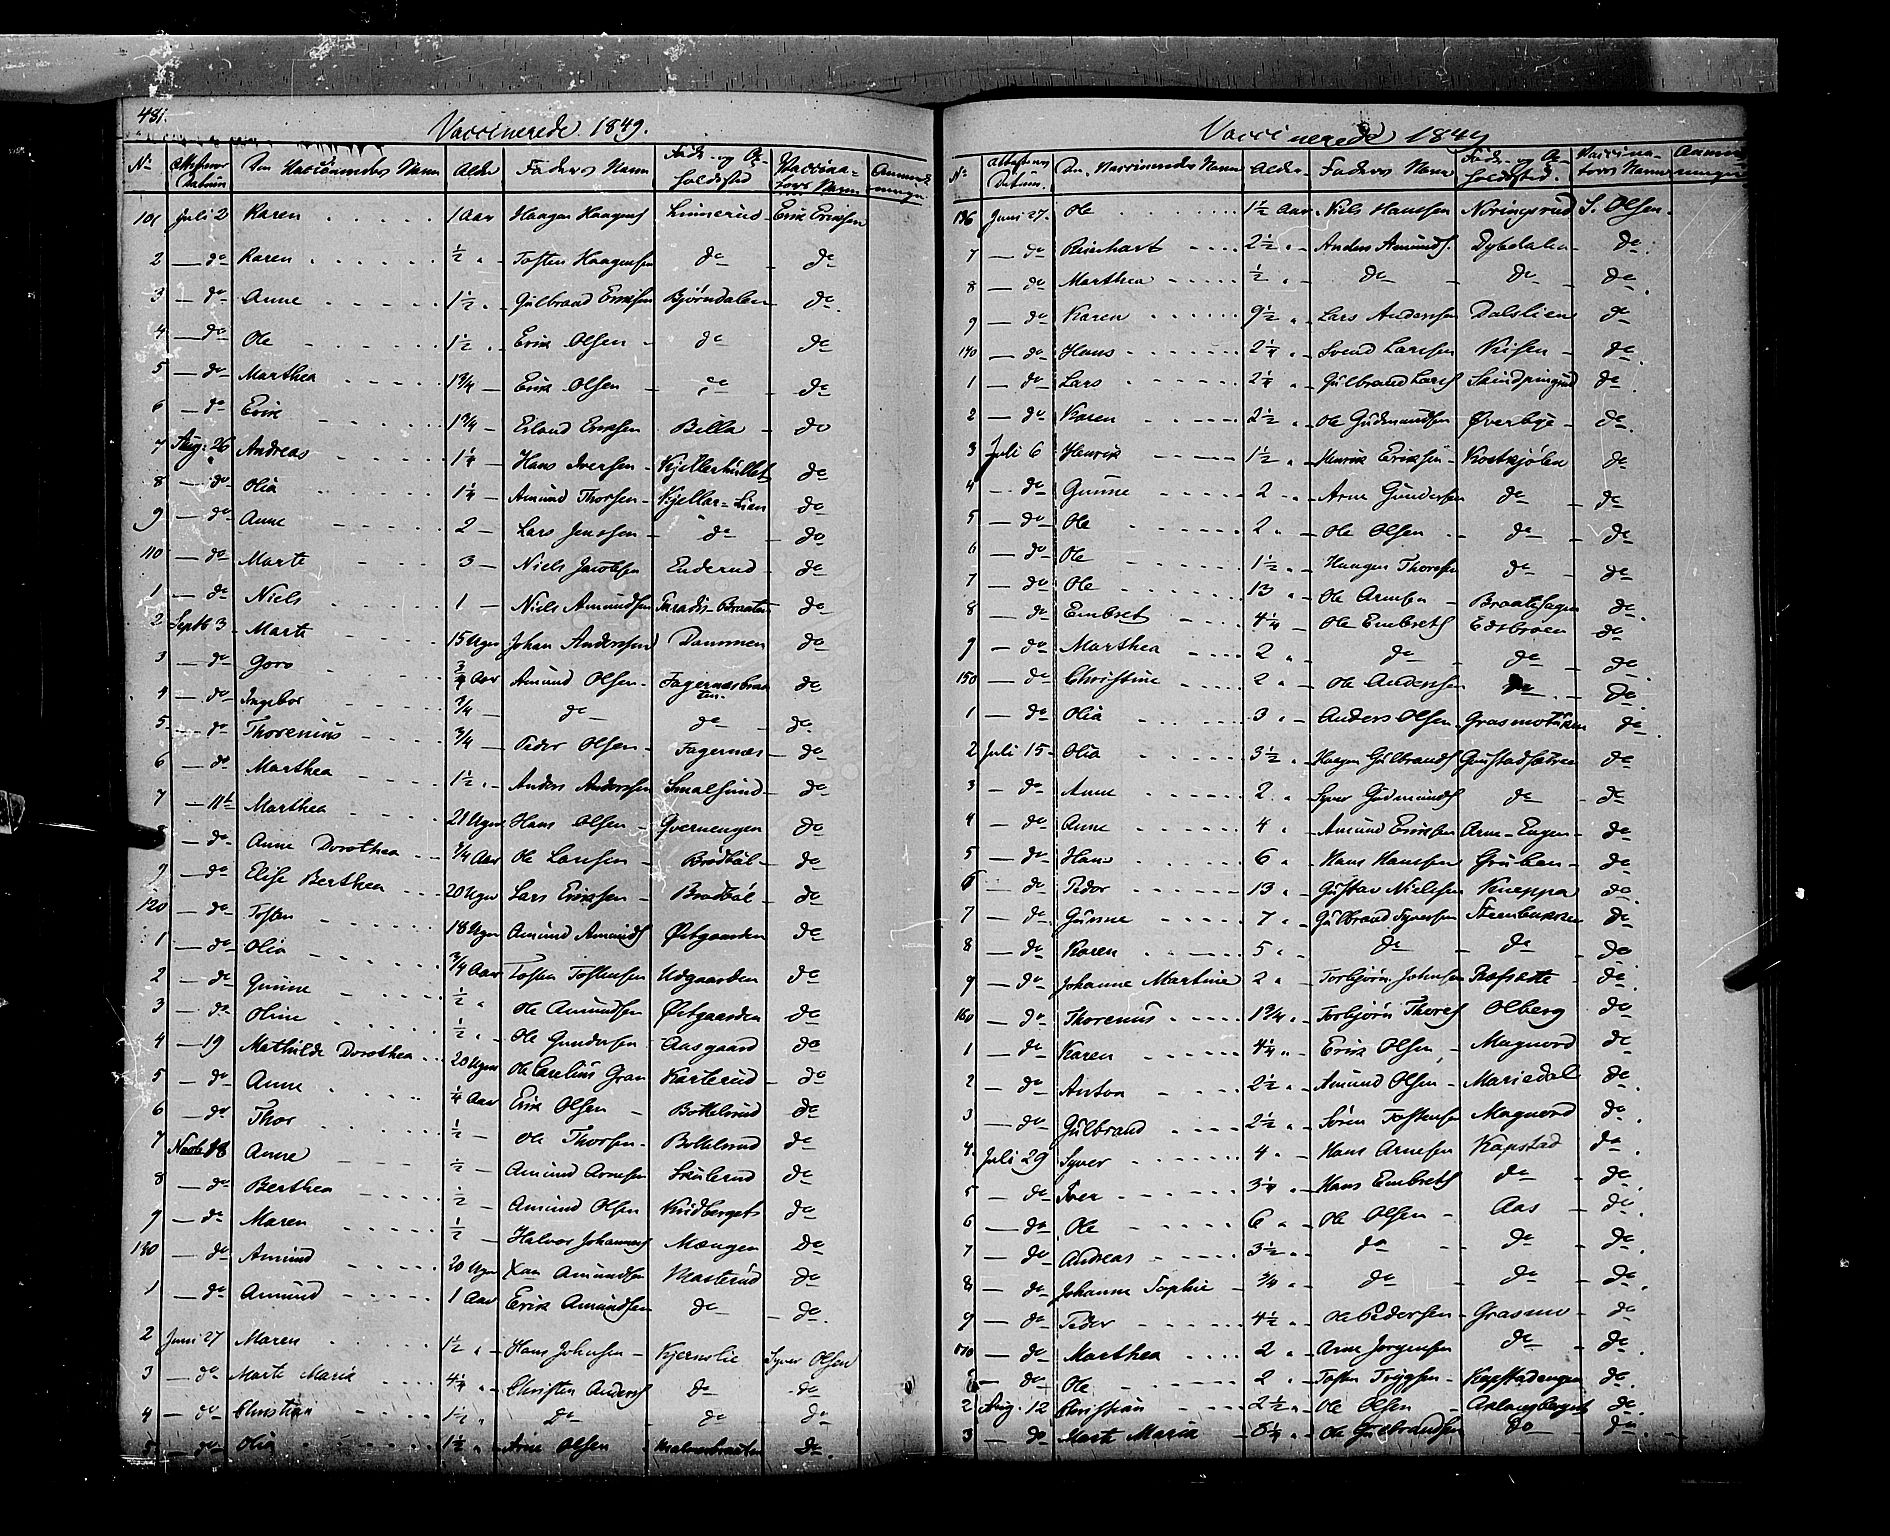 481.
Vaccinerede 1849.
No Attestens Datum Den Vaccineredes Navn Alder Faders Navn Føde- og Opholdssted Vaccinatørs Navn Anmærkninger
101 Juli 2 Karen 1 Aar Haagen Haagens Linnerud Erik Eriksen
2 — do Karen ½ " Tosten Haagensen do do
3 — do Anne 1½ " Gulbrand Eriksen Bjørndalen do
4 — do Ole 1½ " Erik Olsen do do
5 — do Marthea 1¾ — Erik Olsen do do
6 — do Erik 1¾ — Erland Eriksen Billa do
7 Aug. 26 Andreas 1¼ — Hans Iversen Kjellerhullet do
8 — do Olia 1¼ — Amund Thorsen Kjellar=Lien do
9 — do Anne 2 — Lars Jensen do do
110 — do Marte 3 — Niels Jacobsen Enderud do
1 — do Niels 1 — Niels Amundsen Paradis-Braaten do
2 Septb 3 Marte 15 Uger Johan Anderssen Dammen do
3 — do Goro ¾ Aar Amund Olsen Fagernæsbraaten do
4 — do Ingebor ¾ — do do do
5 — do Thorenius ¾ — Peder Olsen Fagernæs do
6 — do Marthea 1½ " Anders Anderssen Smalsund do
7 — 11te Marthea 21 Uger Hans Olsen Qvernengen do
8 — do Anne Dorothea ¾ Aar Ole Larssen Brødbøl do
9 — do Elise Berthea 20 Uger Lars Eriksen Brødbøl do
120 — do Tosten 18 Uger Amund Amunds Østgaarden do
1 — do Olia ¾ Aar Tosten Tostensen Udgaarden do
2 — do Gunne ½ " Ole Amundsen Østgaarden do
3 — do Oline ½ " Ole Gundersen Aasgaard do
4 — 19 Mathilde Dorothea 20 Uger Ole Carelius Gran Karterud do
5 — do Anne ¼ Aar Erik Olsen Bottelsrud do
6 — do Thor ½ — Ole Thorsen Bottelsrud do
7 Novbr 18 Anne ½ — Amund Arnesen Skulerud do
8 — do Berthea ½ — Amund Olsen Kridberget do
9 — do Maren ½ Halvor Johannes Mængen do
130 — do Amund 20 Uger Amundsen Masterud do
1 — do Amund 1 Aar Erik Amundsen do do
2 Juni 27 Maren 1½ " Hans Johnsen Kjernslie Syver Olsen
3 — do Marte Marie 4¼ " Christen Anders do do
4 — do Christian 1½ " do do do
5 — do Olia 1½ " Arne Olsen Malmerbraaten do
Vaccinerede 1849
No Attestens Datum. Den Vaccineredes Navn Alder Faders Navn Føde- og Opholdssted. Vaccinatørs Navn Anmærkninger
136 Juni 27. Ole 1½ Aar Niels Hanssen Noringsrud S. Olsen.
7 — do Reinhart 2½ " Anders Amunds. Dybdalen do
8 — do Marthea ½ " do do do
9 — do Karen 9½ " Lars Anderssen Dalslien do
140 — do Hans 2¼ " Svend Larssen Kisen do
1 — do Lars 2¼ " Gulbrand Lars do
2 — do Karen 2½ " Ole Gudmundsen Øverbye do
3 Juli 6 Henrik 1½ " Henrik Eriksen Kostkjølen do
4 — do Gunne 2 " Arne Gundersen do do
5 — do Ole 2 " Ole Olsen do do
6 — do Ole 1½ " Haagen Thoresen do do
7 — do Ole 13 " Ole Arnesen Braatehagen do
8 — do Embret 4¼ — Ole Embrets Edsbroen do
9 — do Marthea 2 " do do do
150 — do Christine 2 " Ole Anderssen do do
1 — do Olia 3 " Anders Olsen Grasmotåen do
2 Juli 15 Olia 3½ " Haagen Gulbrands Gunstadsæteren do
3 — do Anne 2 " Syver Gudmunds do do
4 — do Anne 4 " Amund Eriksen Arne-Engen do
5 — do Hans 6 " Hans Hanssen Gruben do
6 — do Peder 13 " Gustav Nielsen Kneppa do
7 — do Gunne 7 " Gulbrand Syversen Steenbækken do
8 — do Karen 5 " do do do
9 — do Johanne Martine 2 " Torbjørn Johnsen Rafsætte do
160 — do Thorenus 1¾ " Torbjørn Thores Olberg do
1 — do Karen 4¼ " Erik Olsen Magnord do
2 — do Anton 2½ " Amund Olsen Mariedal do
3 — do Gulbrand 2½ " Søren Tostensen Magnord do
4 Juli 29 Syver 4 " Hans Arnesen Kapstad do
5 — do Iver 3¼ " Hans Embrets do do
6 — do Ole 6 " Ole Olsen Aas do
7 — do Andreas 3½ " do do do
8 — do Johanne Sophie ¾ " do do do
9 — do Peder 4½ " Ole Pedersen Grasmo do
170 — do Marthea 2 " Arne Jørgensen do do
1 — do Ole 2 " Tosten Trygsen Kapstadengen do
2 Aug. 12 Christian 2½ " Ole Olsen Aslangberget do
3 — do Marte Maria 5¼ " Ole Gulbrandsen do do